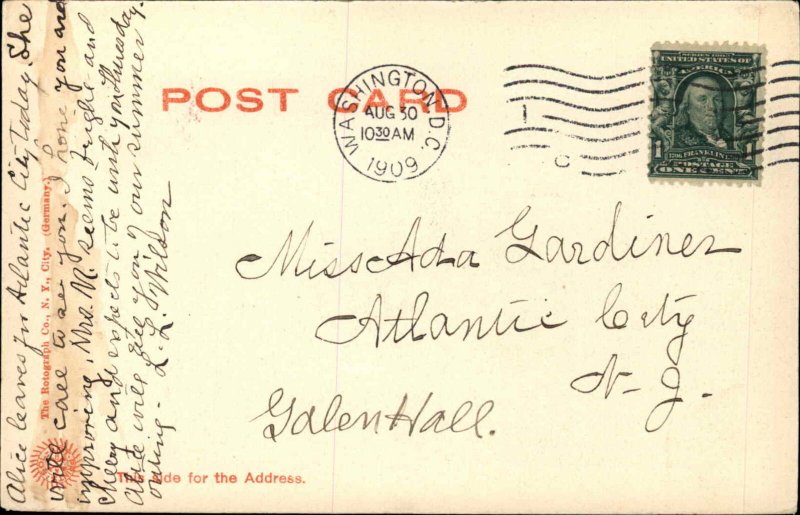 POST CARD
WASHINGTON, D.C.
AUG 30
10 30 AM
1909
1
C
SERIES 1902
UNITED STATES OF
AMERICA
1706 FRANKLIN 1790
POSTAGE
1 ONE CENT 1
Miss Ada Gardiner
Atlantic City
N. J.
Galen Hall.
Alice leaves for Atlantic City today. She
will call to see you. I hope you are
improving. Mrs. M. seems bright and
cheery and expects to be with you Thursday.
Alice will give you our summer
outing - L. L. Wilson
The Rotograph Co., N. Y., City. (Germany.)
This side for the Address.